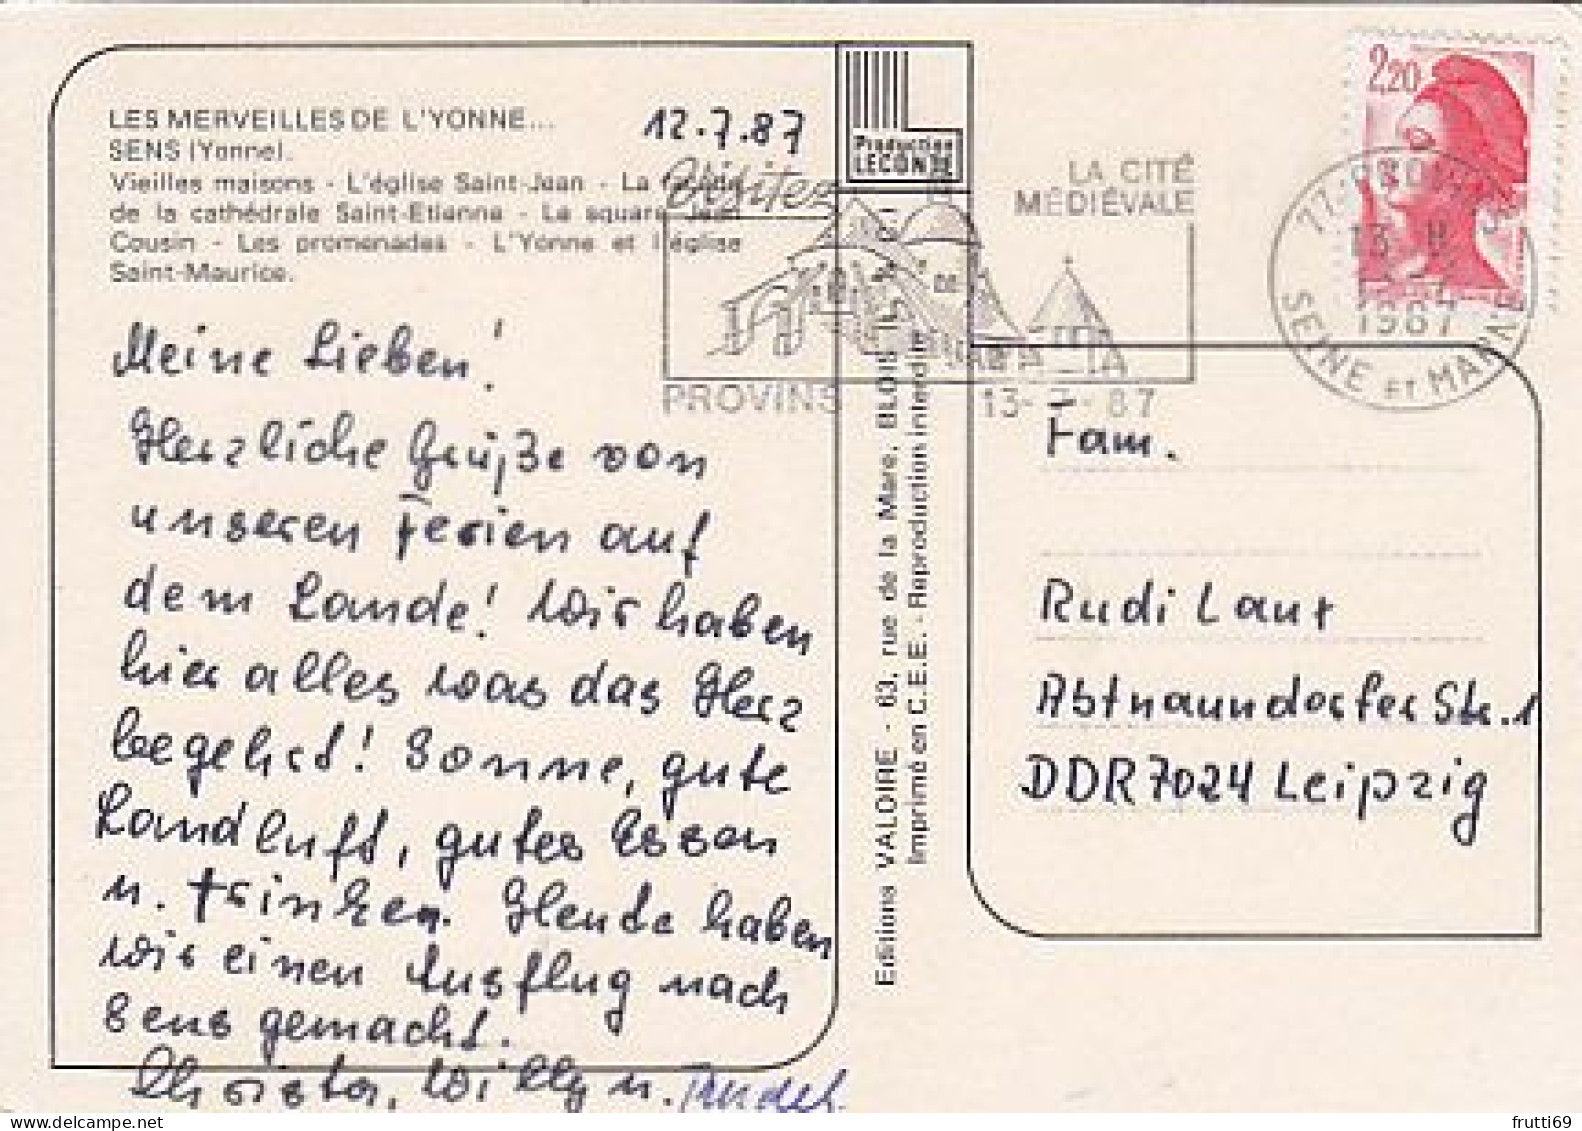 LES MERVEILLES DE L'YONNE...
SENS (Yonne).
Vieilles maisons - L'église Saint-Jean - La façade
de la cathédrale Saint-Etienne - Le square Jean
Cousin - Les promenades - L'Yonne et l'église
Saint-Maurice.
12.7.87
Production
LECONTE
Visitez
LA CITÉ
MÉDIÉVALE
PROVINS
13-7-87
2,20
13
1987
SEINE ET MARNE
Meine Lieben!
Herzliche Grüße von
unseren Ferien auf
dem Lande! Wir haben
hier alles was das Herz
begehrt! Sonne, gute
Landluft, gutes Essen
u. trinken. Heute haben
wir einen Ausflug nach
Sens gemacht.
Christa, Willy u.
Editions VALOIRE - 63, rue de la Mare, BLOIS
Imprimé en C.E.E. - Reproduction interdite
Fam.
Rudi Laut
Abtnaundorfer Str. 1
DDR 7024 Leipzig
frutti69